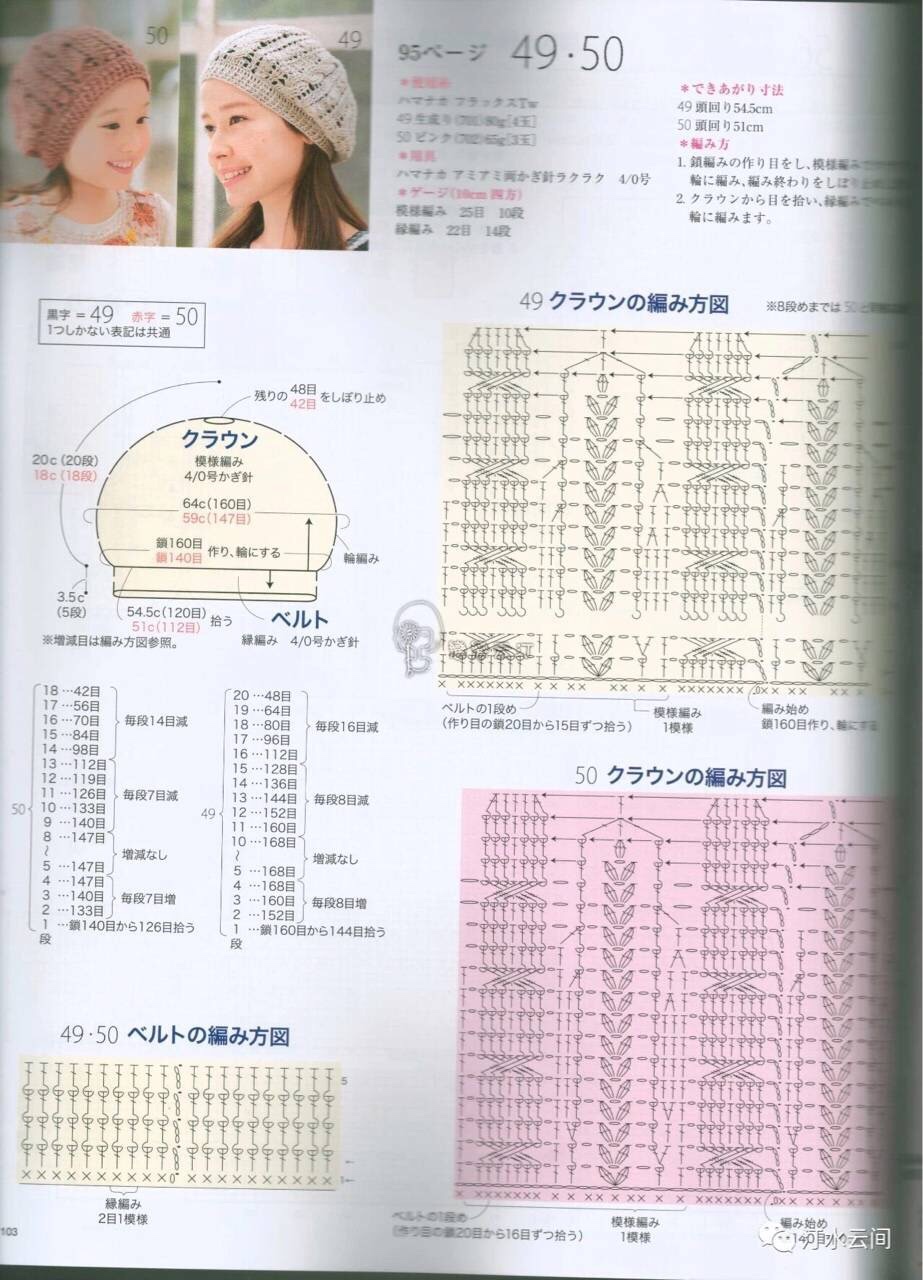 50
49
95ページ 49・50
ハマナカ フラックスTw
49 生成り(701)80g[4玉]
50 ピンク(702)65g[3玉]
＊用具
ハマナカ アミアミ両かぎ針ラクラク 4/0号
＊ゲージ(10cm四方)
模様編み 25目 10段
縁編み 22目 14段
＊できあがり寸法
49 頭回り54.5cm
50 頭回り51cm
＊編み方
1. 鎖編みの作り目をし、模様編み
輪に編み、編み終わりをしぼり止め
2. クラウンから目を拾い、縁編み
輪に編みます。
黒字＝49 赤字＝50
1つしかない表記は共通
残りの48目
42目
をしぼり止め
クラウン
模様編み
4/0号かぎ針
20c(20段)
18c(18段)
64c(160目)
59c(147目)
鎖160目
鎖140目
作り、輪にする
輪編み
3.5c
(5段)
54.5c(120目)
51c(112目)
拾う
ベルト
縁編み 4/0号かぎ針
※増減目は編み方図参照。
50
18…42目
17…56目
16…70目
15…84目
14…98目
毎段14目減
13…112目
12…119目
11…126目
10…133目
9…140目
毎段7目減
8…147目
〜
5…147目
増減なし
4…147目
3…140目
2…133目
毎段7目増
1…鎖140目から126目拾う
段
49
20…48目
19…64目
18…80目
17…96目
16…112目
毎段16目減
15…128目
14…136目
13…144目
12…152目
11…160目
毎段8目減
10…168目
〜
5…168目
増減なし
4…168目
3…160目
2…152目
毎段8目増
1…鎖160目から144目拾う
段
49・50 ベルトの編み方図
5
1
縁編み
2目1模様
103
49 クラウンの編み方図
※8段めまでは50と
ベルトの1段め
(作り目の鎖20目から15目ずつ拾う)
模様編み
1模様
編み始め
鎖160目作り、輪にする
50 クラウンの編み方図
ベルトの1段め
(作り目の鎖20目から16目ずつ拾う)
模様編み
1模様
編み始め
140目
云间